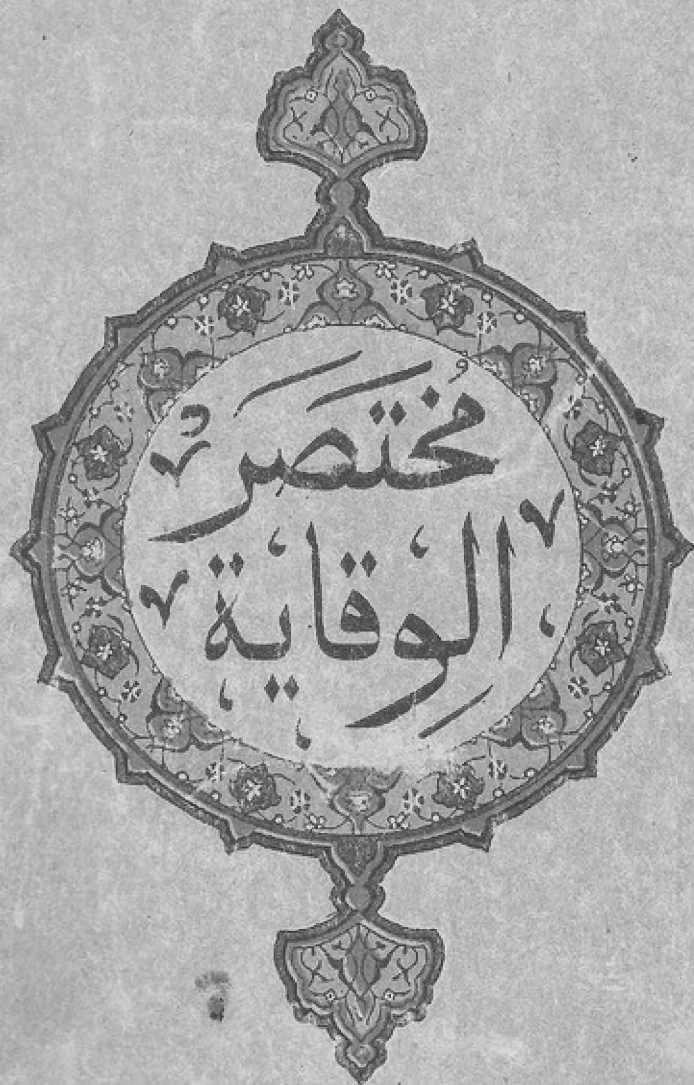 مُختصر
الوِقاية